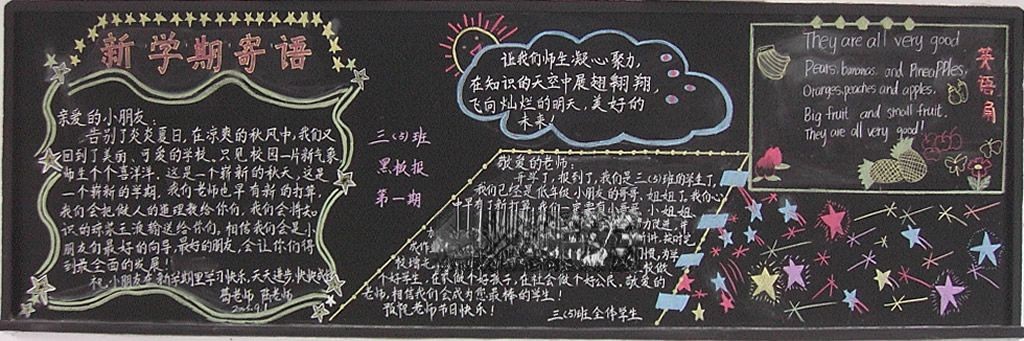 新学期寄语
亲爱的小朋友:
告别了炎炎夏日,在凉爽的秋风中,我们又
回到了美丽、可爱的学校。只见校园一片新气象,
师生个个喜洋洋。这是一个崭新的秋天,这是
一个崭新的学期,我们老师也早有新的打算,
我们会把做人的道理教给你们,我们会将知
识的琼浆玉液输送给你们,相信我们会是小
朋友们最好的向导、最好的朋友,会让你们得
到最全面的发展!
祝:小朋友在新学期里学习快乐,天天进步,快快
三(5)班
黑板报
第一期
让我们师生凝心聚力,
在知识的天空中展翅翱翔,
飞向灿烂的明天,美好的
未来!
敬爱的老师:
开学了,报到了,我们是三(5)班的学生了,
我们已经是低年级小朋友的哥哥、姐姐了,我们心
中早有了新打算
小姐姐、
个好学生,在家做个好孩子,在社会做个好公民,敬爱的
老师,相信我们会成为您最棒的学生!
祝您老师节日快乐!
三(5)班全体学生
They are all very good
Pears, bananas, and Pineapples,
Oranges, peaches and apples.
Big fruit and small fruit.
They are all very good!
英语角